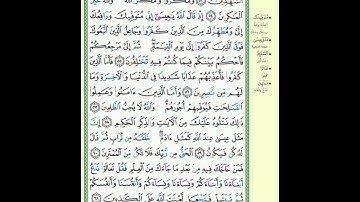 ٱلشَّٰهِدِينَ ﴿٥٣﴾ وَمَكَرُوا۟ وَمَكَرَ ٱللَّهُ
ٱلْمَٰكِرِينَ ﴿٥٤﴾ إِذْ قَالَ ٱللَّهُ يَٰعِيسَىٰٓ إِنِّى مُتَوَفِّيكَ وَرَافِعُكَ
إِلَىَّ وَمُطَهِّرُكَ مِنَ ٱلَّذِينَ كَفَرُوا۟ وَجَاعِلُ ٱلَّذِينَ ٱتَّبَعُوكَ
فَوْقَ ٱلَّذِينَ كَفَرُوٓا۟ إِلَىٰ يَوْمِ ٱلْقِيَٰمَةِ ثُمَّ إِلَىَّ مَرْجِعُكُمْ
فَأَحْكُمُ بَيْنَكُمْ فِيمَا كُنتُمْ فِيهِ تَخْتَلِفُونَ ﴿٥٥﴾ فَأَمَّا ٱلَّذِينَ
كَفَرُوا۟ فَأُعَذِّبُهُمْ عَذَابًا شَدِيدًا فِى ٱلدُّنْيَا وَٱلْءَاخِرَةِ وَمَا
لَهُم مِّن نَّٰصِرِينَ ﴿٥٦﴾ وَأَمَّا ٱلَّذِينَ ءَامَنُوا۟ وَعَمِلُوا۟
ٱلصَّٰلِحَٰتِ فَيُوَفِّيهِمْ أُجُورَهُمْ وَٱللَّهُ لَا يُحِبُّ ٱلظَّٰلِمِينَ ﴿٥٧﴾
ذَٰلِكَ نَتْلُوهُ عَلَيْكَ مِنَ ٱلْءَايَٰتِ وَٱلذِّكْرِ ٱلْحَكِيمِ ﴿٥٨﴾ إِنَّ
مَثَلَ عِيسَىٰ عِندَ ٱللَّهِ كَمَثَلِ ءَادَمَ خَلَقَهُۥ مِن تُرَابٍ ثُمَّ قَالَ
لَهُۥ كُن فَيَكُونُ ﴿٥٩﴾ ٱلْحَقُّ مِن رَّبِّكَ فَلَا تَكُن مِّنَ ٱلْمُمْتَرِينَ ﴿٦٠﴾
فَمَنْ حَآجَّكَ فِيهِ مِنۢ بَعْدِ مَا جَآءَكَ مِنَ ٱلْعِلْمِ فَقُلْ تَعَالَوْا۟ نَدْعُ
أَبْنَآءَنَا وَأَبْنَآءَكُمْ وَنِسَآءَنَا وَنِسَآءَكُمْ وَأَنفُسَنَا وَأَنفُسَكُمْ
ثُمَّ نَبْتَهِلْ فَنَجْعَل لَّعْنَتَ ٱللَّهِ عَلَى ٱلْكَٰذِبِينَ ﴿٦١﴾